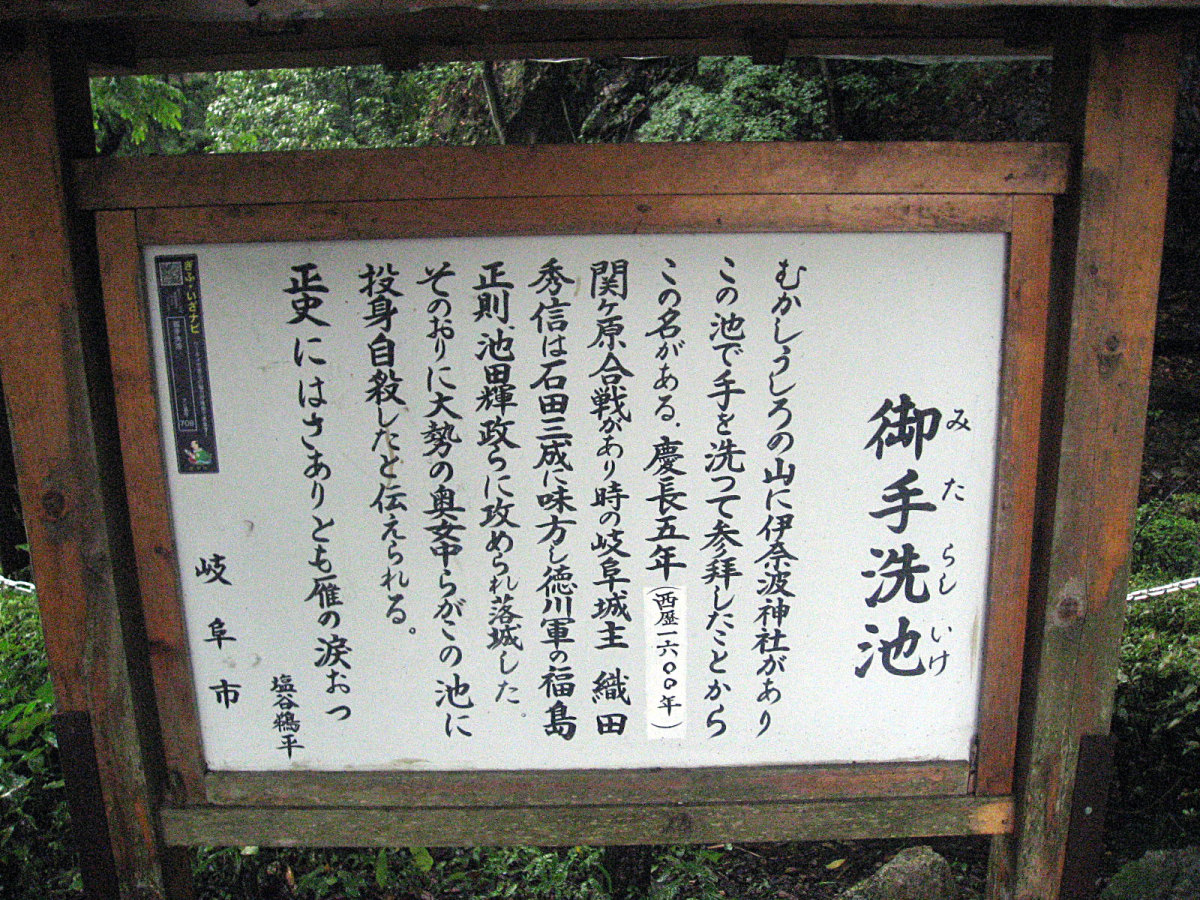 御手洗池
みたらしいけ
むかしうしろの山に伊奈波神社があり
この池で手を洗って参拝したことから
この名がある．慶長五年（西歴一六〇〇年）
関ヶ原合戦があり時の岐阜城主 織田
秀信は石田三成に味方し徳川軍の福島
正則、池田輝政らに攻められ落城した。
そのおりに大勢の奥女中らがこの池に
投身自殺したと伝えられる。
正史にはさありとも雁の涙おつ
塩谷鵜平
岐阜市
ぎふ・いざナビ
709